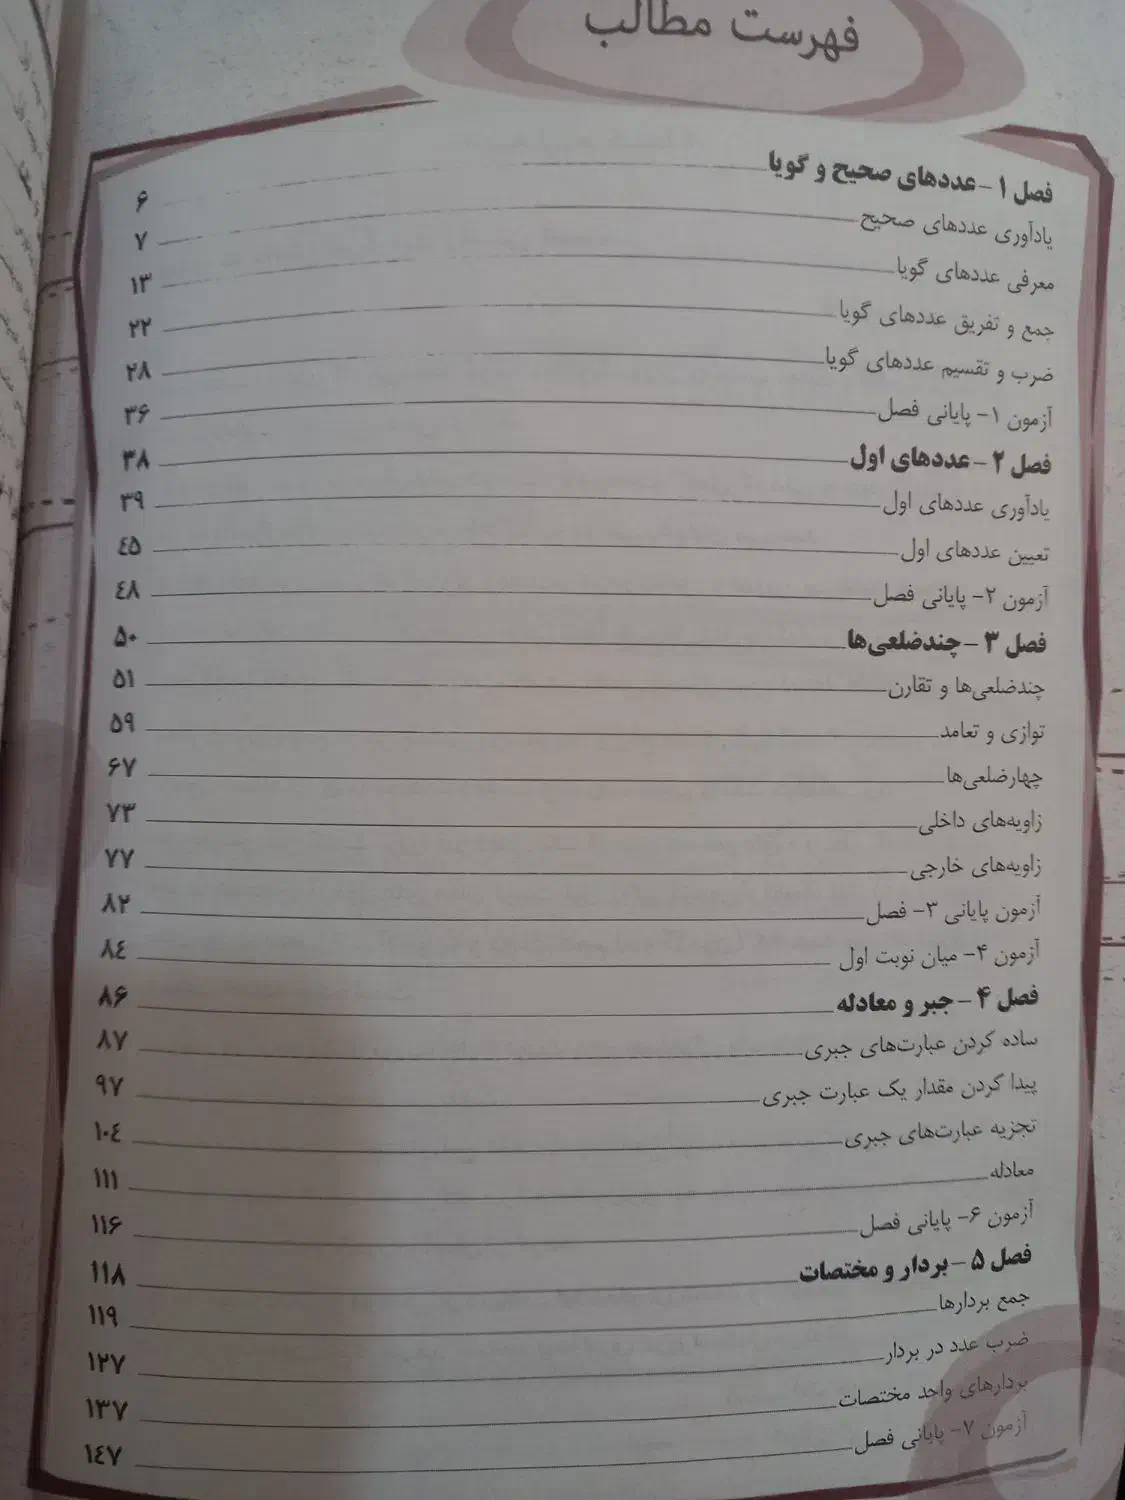 فهرست مطالب
فصل ۱ – عددهای صحیح و گویا ۶
یادآوری عددهای صحیح ۷
معرفی عددهای گویا ۱۳
جمع و تفریق عددهای گویا ۲۲
ضرب و تقسیم عددهای گویا ۲۸
آزمون ۱- پایانی فصل ۳۶
فصل ۲ – عددهای اول ۳۸
یادآوری عددهای اول ۳۹
تعیین عددهای اول ٤۵
آزمون ۲- پایانی فصل ٤۸
فصل ۳ – چندضلعی‌ها ۵۰
چندضلعی‌ها و تقارن ۵۱
توازی و تعامد ۵۹
چهارضلعی‌ها ۶۷
زاویه‌های داخلی ۷۳
زاویه‌های خارجی ۷۷
آزمون پایانی ۳- فصل ۸۲
آزمون ۴- میان نوبت اول ۸٤
فصل ۴ – جبر و معادله ۸۶
ساده کردن عبارت‌های جبری ۸۷
پیدا کردن مقدار یک عبارت جبری ۹۷
تجزیه عبارت‌های جبری ۱۰٤
معادله ۱۱۱
آزمون ۶- پایانی فصل ۱۱۶
فصل ۵ – بردار و مختصات ۱۱۸
جمع بردارها ۱۱۹
ضرب عدد در بردار ۱۲۷
بردارهای واحد مختصات ۱۳۷
آزمون ۷- پایانی فصل ۱٤۷